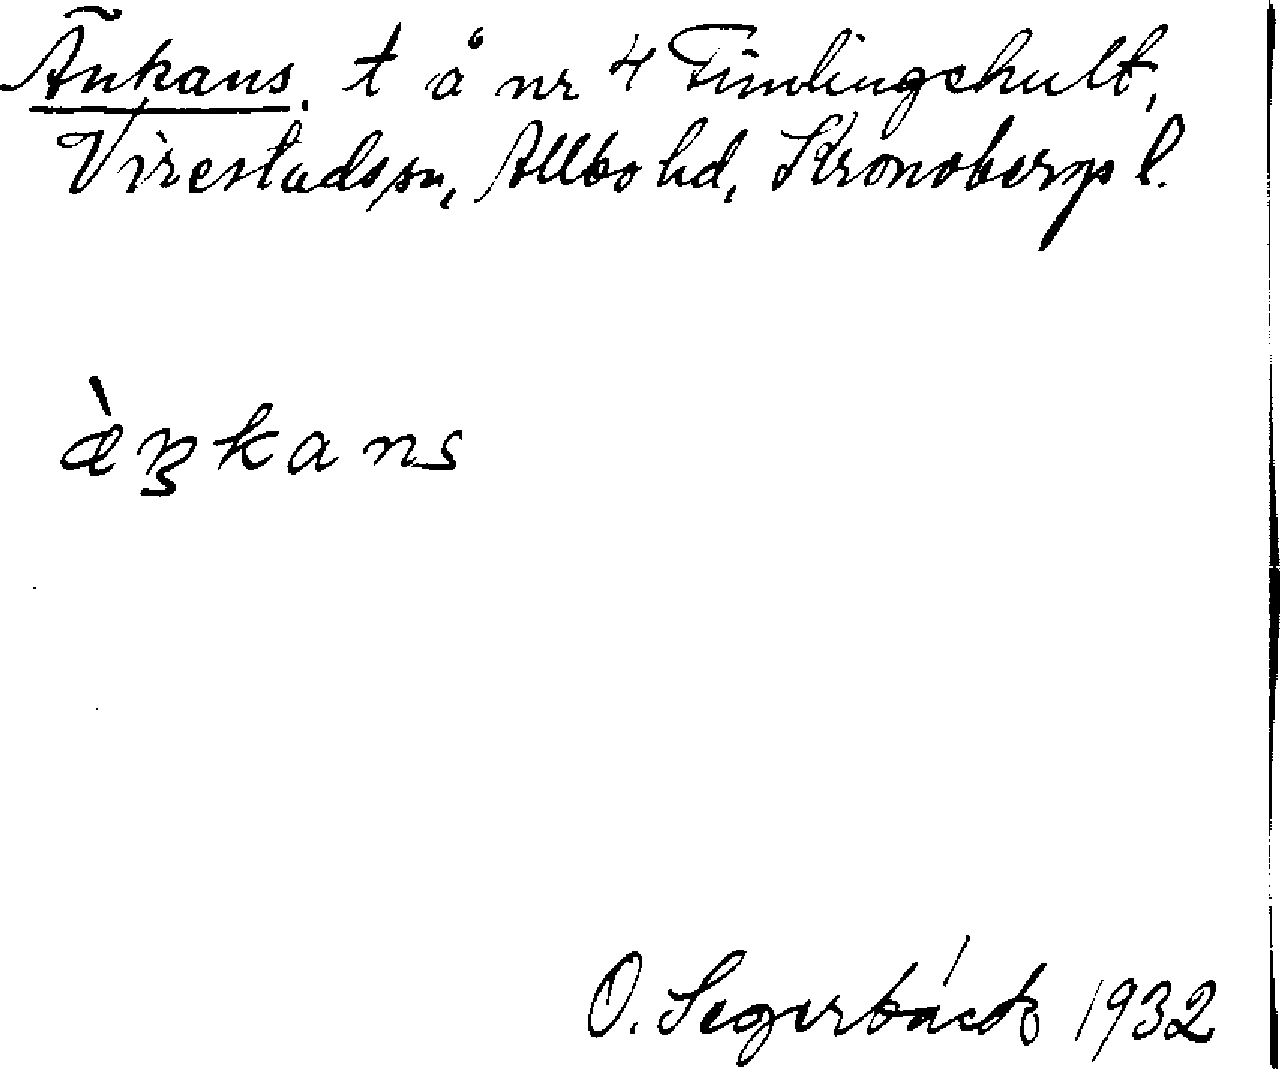 Änkans. t å nr 4 Fimlingehult,
Virestads sn, Allbo hd, Kronobergs l.
æ̀nkans
O. Segerbäck 1932